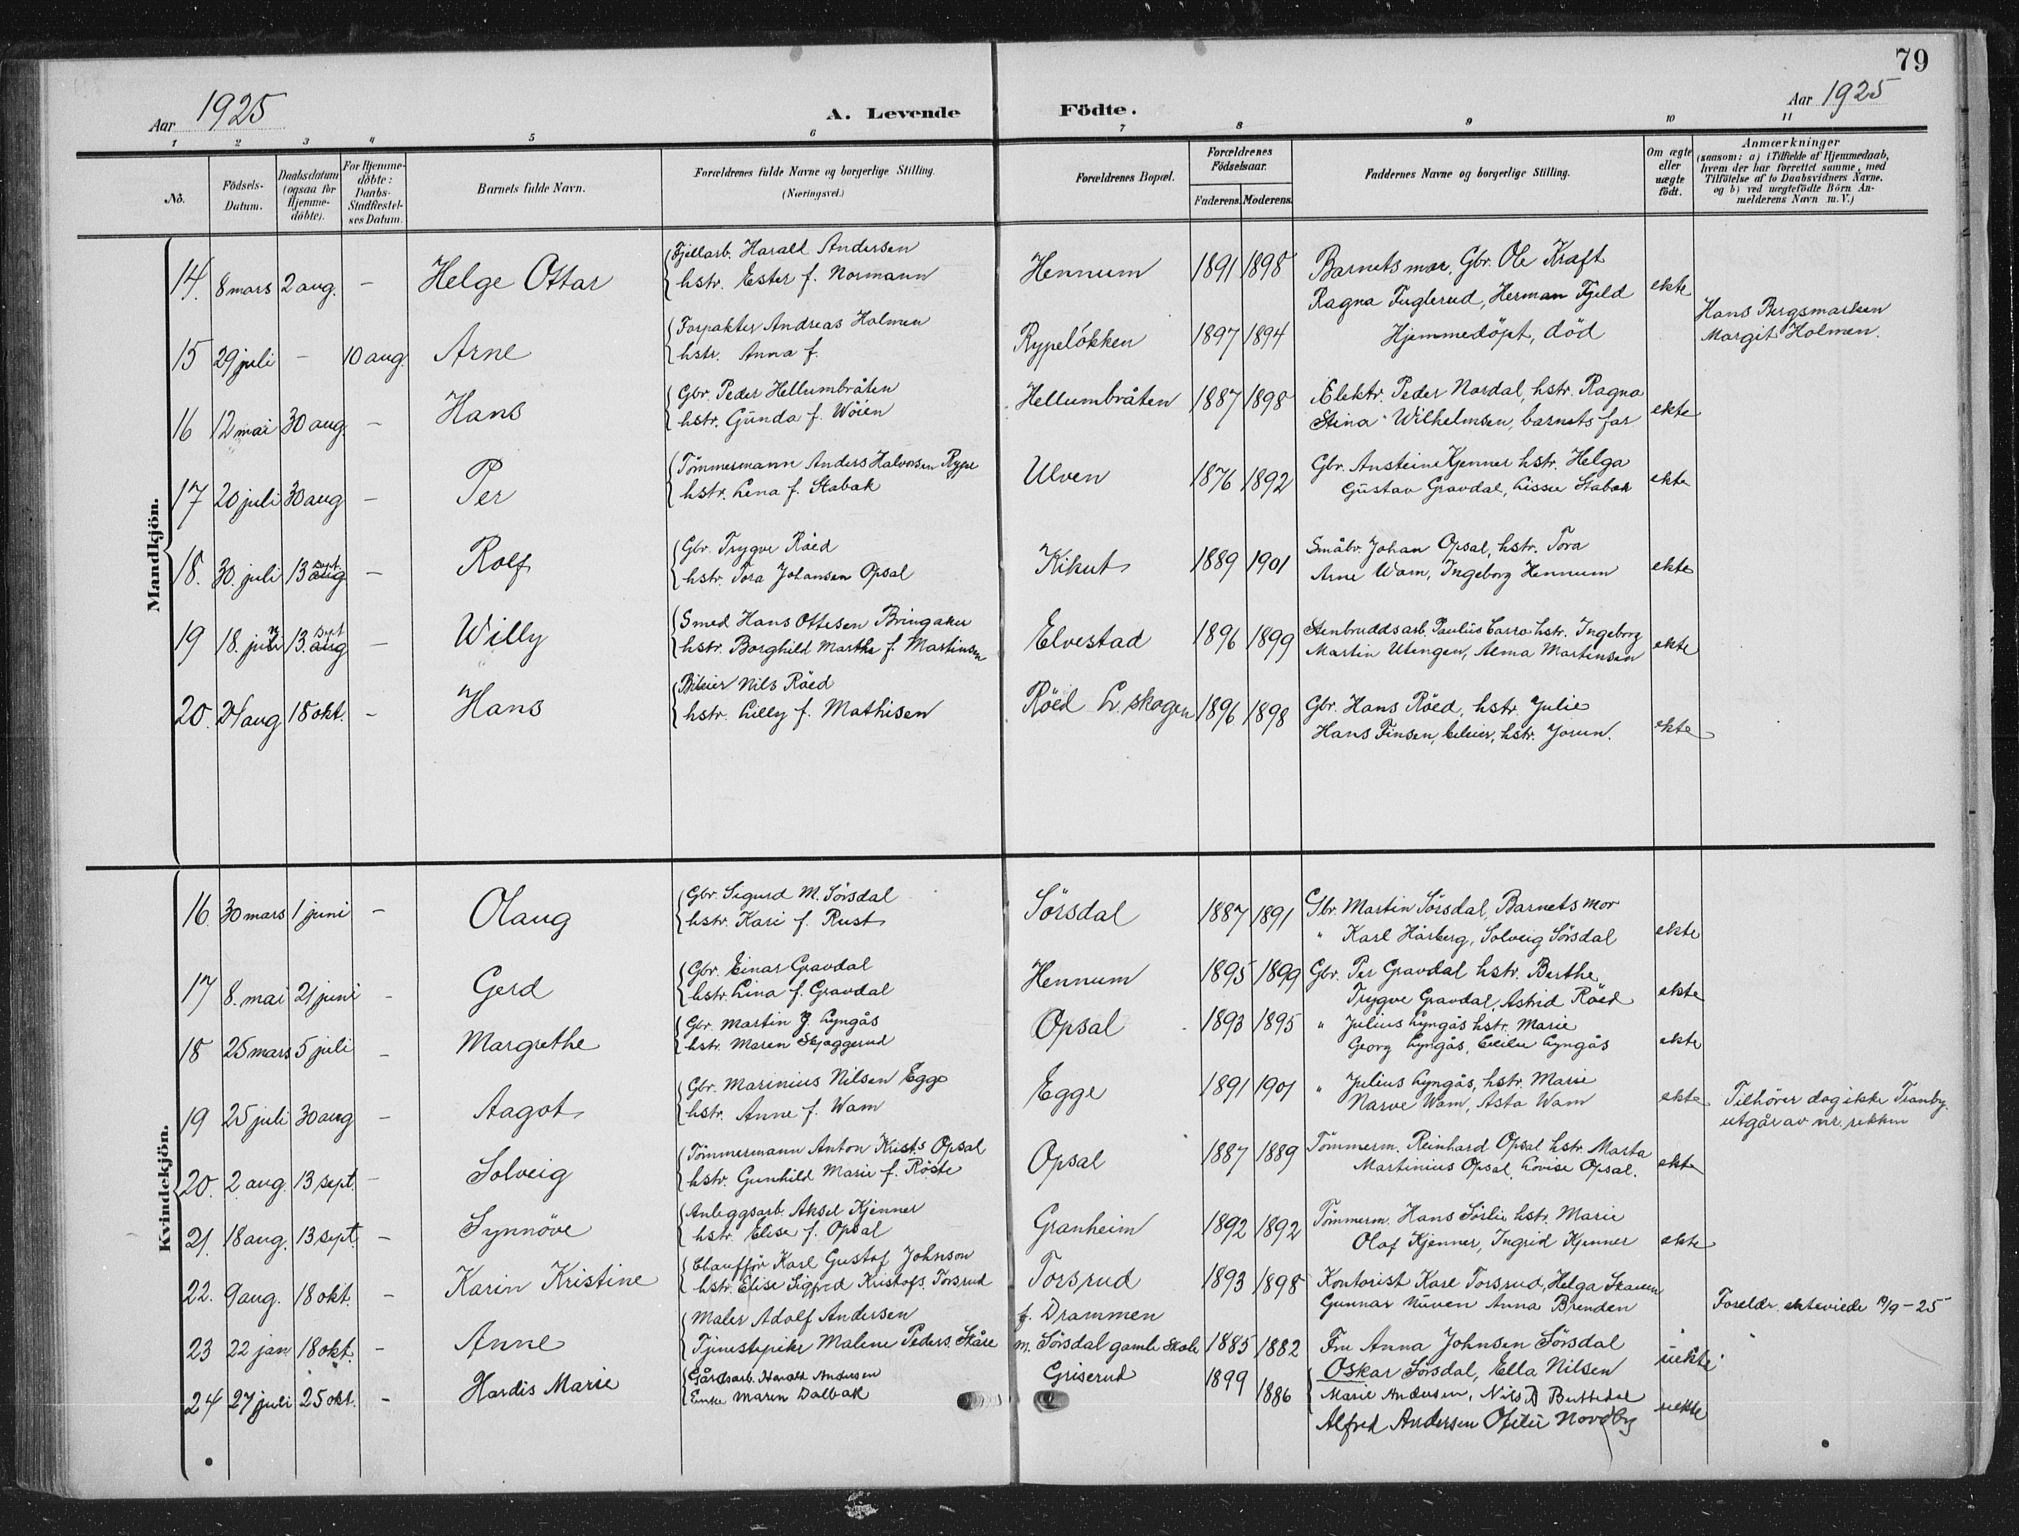 79
Aar 1925
A. Levende
Födte.
Aar 1925
1 2 3 4 5 6 7 8 9 10 11
No.
Födsels-
Datum.
Daabsdatum
(ogsaa for
Hjemme-
döbte).
For Hjemme-
döbte:
Daabs-
Stadfæstel-
ses Datum.
Barnets fulde Navn.
Forældrenes fulde Navne og borgerlige Stilling.
(Næringsvei.)
Forældrenes Bopæl.
Forældrenes
Födselsaar.
Faderens. Moderens.
Faddernes Navne og borgerlige Stilling.
Om ægte
eller
uægte
födt.
Anmærkninger
(saasom: a) i Tilfælde af Hjemmedaab,
hvem der har forrettet samme, med
Tilföielse af to Daabsvidners Navne,
og b) ved uægtefödte Börn An-
melderens Navn m. V.)
Mandkjön.
14. 8 mars 2 aug. - Helge Ottar Fjellarb. Harald Andersen
hstr. Ester f. Normann Hennum 1891 1898 Barnets mor, Gbr. Ole Kraft
Ragna Fuglerud, Herman Fjeld ekte
15 29 juli - 10 aug. Arne Forpakter Andreas Holmen
hstr. Anna f. Rypelökken 1897 1894 Hjemmedöpt, död Hans Bergsmarken
Margit Holmen.
16 12 mai 30 aug. - Hans Gbr. Peder Hellumbråten
hstr. Gunda f. Wöien Hellumbråten 1887 1898 Elektr. Peder Nordal, hstr. Ragna
Stina Wilhelmsen, barnets far ekte
17 20 juli 30 aug - Per Tömmermann Anders Halvorsen Rype
hstr. Lena f. Stabak Ulven 1876 1892 Gbr. Austein Kjenner hstr. Helga
Gustav Gravdal, Lisse Stabak ekte
18. 30. juli 13 aug sept. - Rolf Gbr. Trygve Röed
hstr. Tora Johansen Opsal Kikut 1889 1901 Småbr. Johan Opsal, hstr. Tora
Arne Wam, Ingeborg Hennum ekte
19 18. juli 13. aug sept - Willy Smed Hans Ottesen Bringaker
hstr. Borghild Marthe f. Martinsen Elvestad 1896 1899 Stenbruddsarb. Paulus Carra hstr. Ingeborg
Martin Utengen, Alma Martinsen ekte
20. 24 aug 18 okt. - Hans Bileier Nils Röed
hstr. Lilly f. Mathisen Röed L. skogen 1896 1898 Gbr. Hans Röed, hstr. Julie
Hans Finsen, bileier, hstr. Jorun. ekte
Kvindekjön.
16. 30 mars 1 juni - Olaug Gbr. Sigurd M. Sörsdal
hstr. Kari f. Rust Sörsdal 1887 1891 Gbr. Martin Sörsdal, Barnets mor
" Karl Hårberg, Solveig Sörsdal ekte
17 8. mai 21 juni - Gerd Gbr. Einar Gravdal
hstr. Lina f. Gravdal Hennum 1895 1899 Gbr. Per Gravdal hstr. Berthe
Trygve Gravdal, Astrid Röed ekte
18 25 mars 5 juli - Margrethe Gbr. Martin J. Lyngås
hstr. Maren Skjaggerud Opsal 1893 1895 " Julius Lyngås hstr. Marie
Georg Lyngås, Cecilie Lyngås ekte
19 25 juli 30 aug - Aagot Gbr. Marinius Nilsen Egge
hstr. Anne f. Wam Egge 1891 1901 " Julius Lyngås, hstr. Marie
Narve Wam, Asta Wam ekte Tilhörer dog ikke Tranby.
utgår av nr. rekken
20. 2 aug. 13 sept. - Solveig Tömmermann Anton Krists Opsal
hstr. Gunhild Marie f. Röste Opsal 1887 1889 Tömmerm. Reinhard Opsal hstr. Marta
Martinius Opsal, Lovise Opsal. ekte
21. 18 aug. 13 sept. - Synnöve Anleggsarb. Aksel Kjenner
hstr. Elise f. Opsal Granheim 1892 1892 Tömmerm. Hans Sörlie hstr. Marie
Olaf Kjenner, Ingrid Kjenner ekte
22. 9 aug. 18 okt. - Karin Kristine Chaufför Karl Gustof Johnson
hstr. Elise Sigfred Kristofs. Torsrud Torsrud 1893 1898 Kontorist Kare Torsrud, Helga Skaven
Gunnar Nuven Anna Brenden
23 22 jan 18 okt. - Anne Maler Adolf Andersen
Tjenstepike Malene Peders. Skåre f. Drammen
m. Sörsdal gamle Skole 1885 1882 Fru Anna Johnsen Sörsdal
Oskar Sörsdal, Ella Nilsen uekte Foreldr. ekteviede 19/9-25
24 27 juli 25 okt. - Hardis Marie Gårdsarb. Harald Andersen
Enke Maren Dalbak Griserud 1899 1886 Marie Andersen, Nils D Buttedal
Alfred Andersen Ofelie Nordby uekte